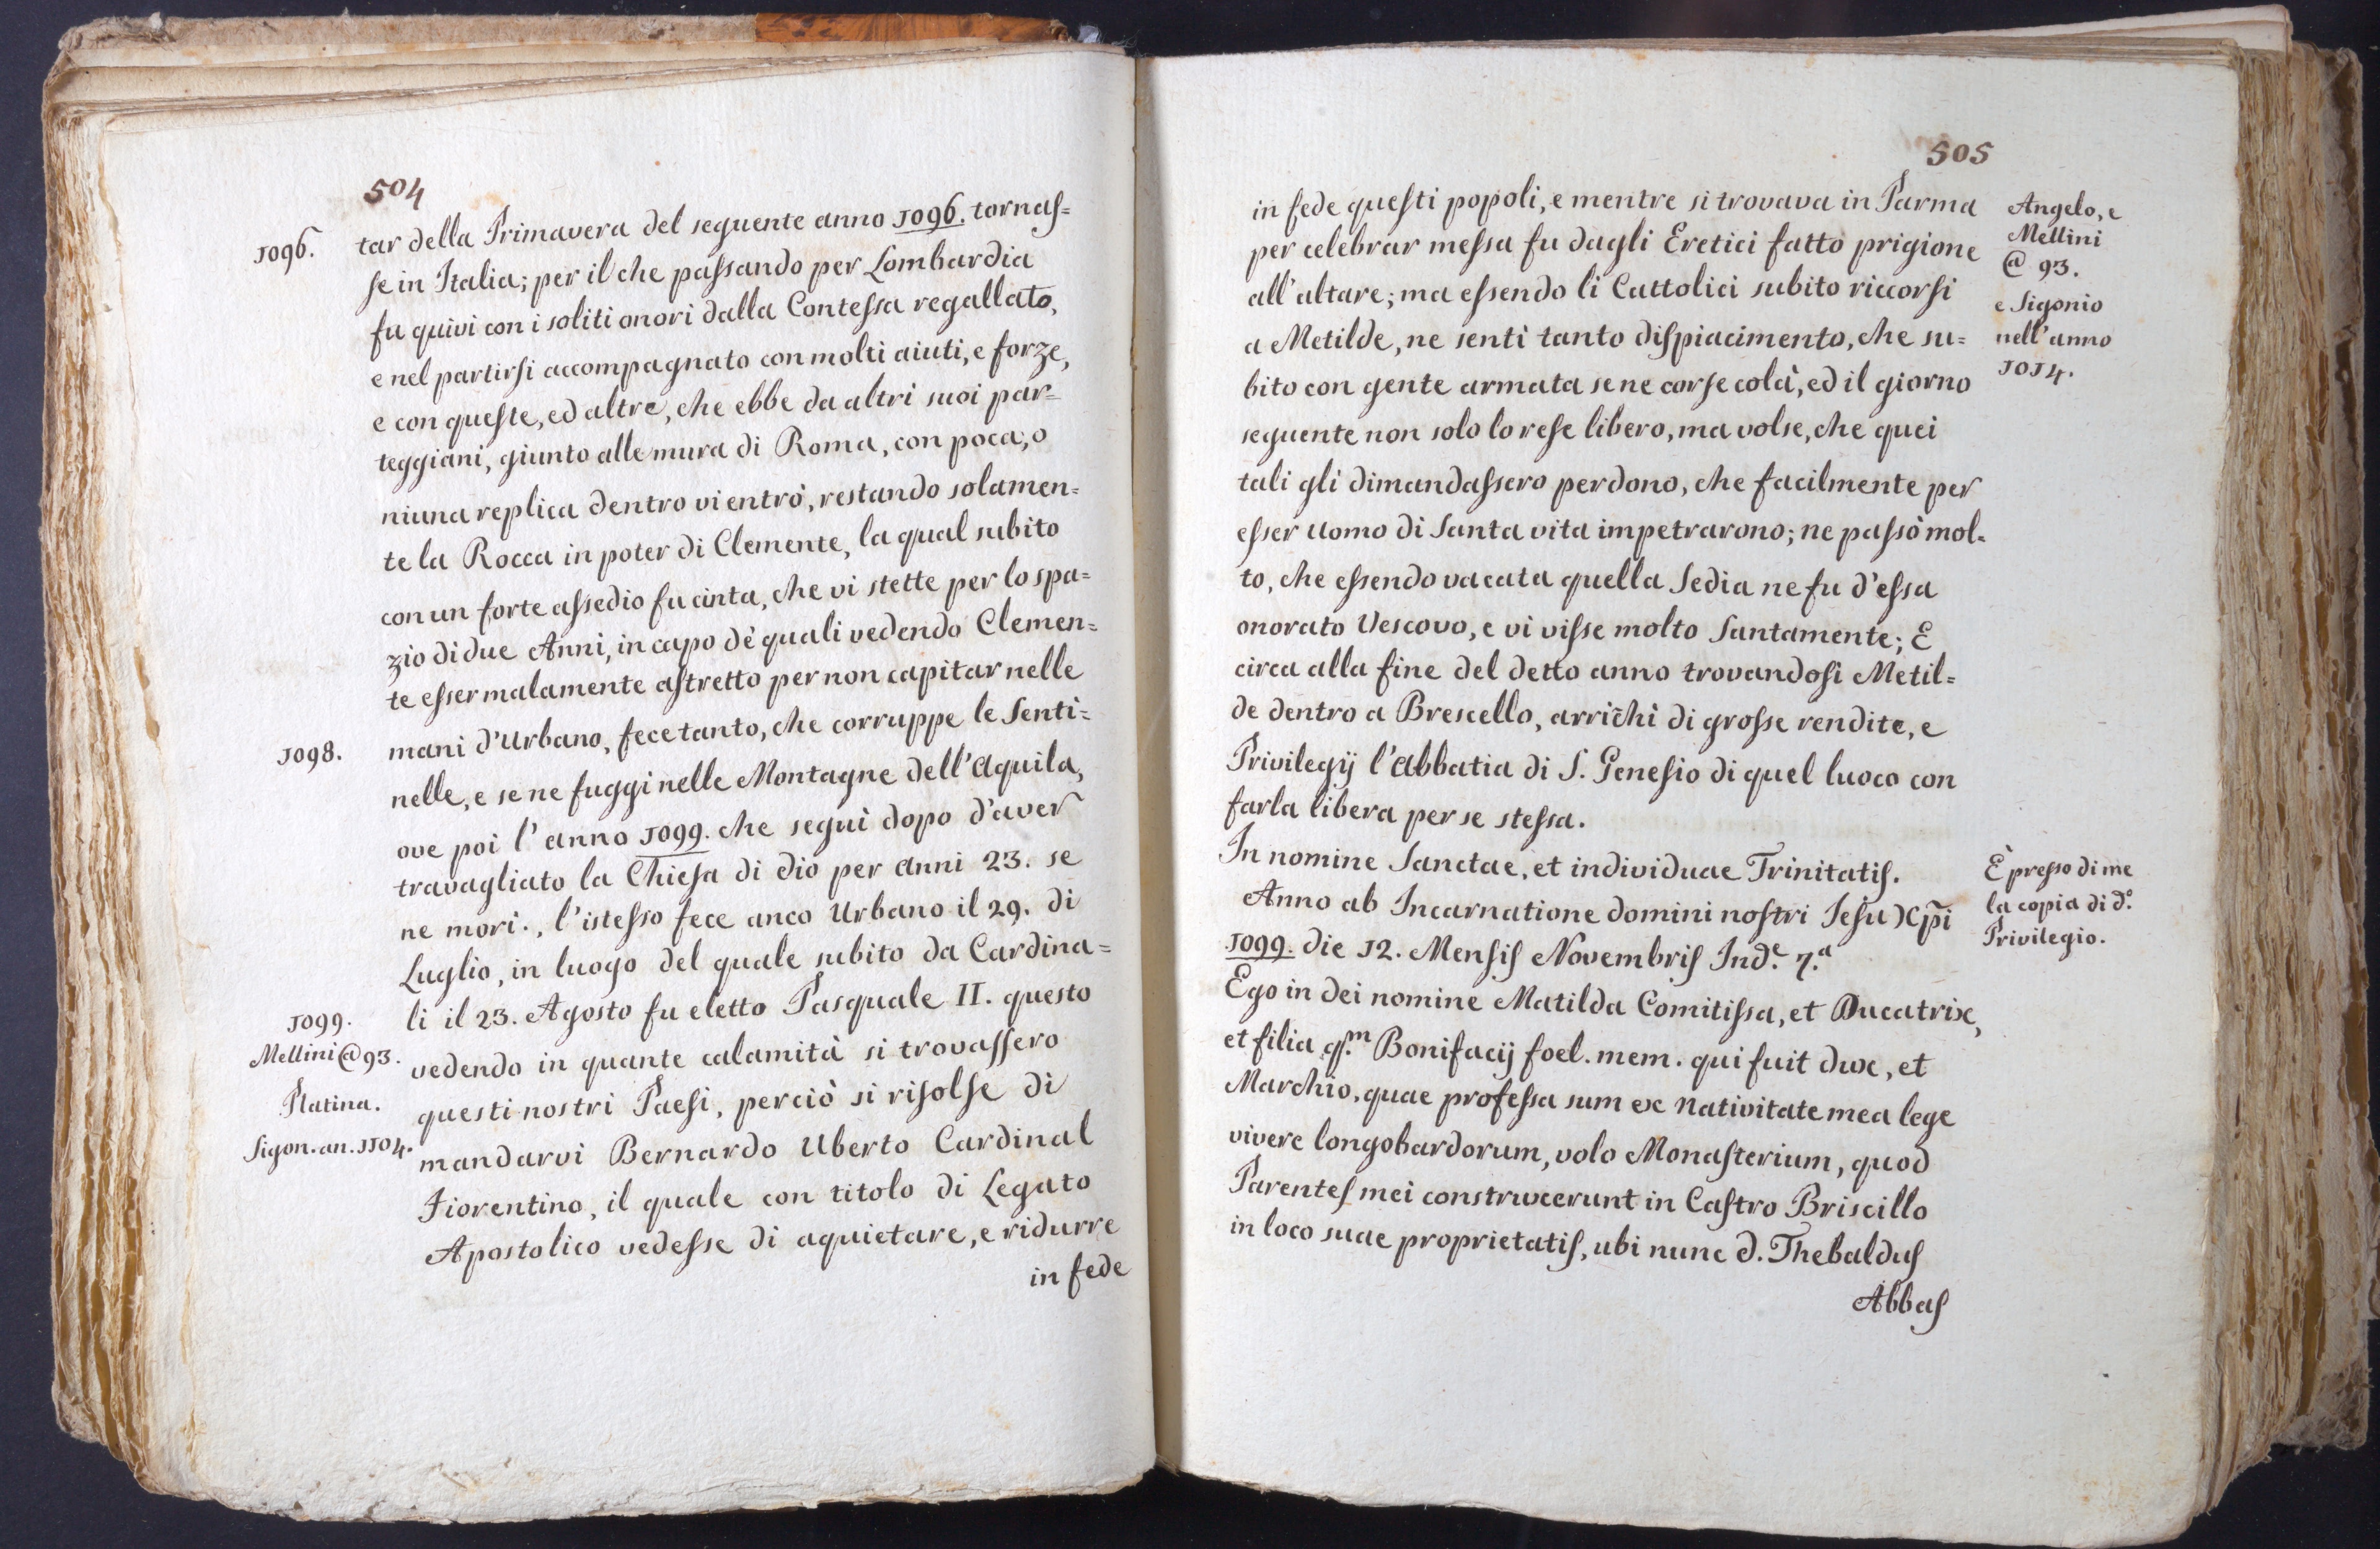 504
1096.
tar della Primavera del seguente anno 1096. tornas=
se in Italia; per il che passando per Lombardia
fu quivi con i soliti onori dalla Contessa regallato,
e nel partirsi accompagnato con molti aiuti, e forze,
e con queste, ed altre, che ebbe da altri suoi par=
teggiani, giunto alle mura di Roma, con poca, o
niuna replica dentro vi entrò, restando solamen=
te la Rocca in poter di Clemente, la qual subito
con un forte assedio fu cinta, che vi stette per lo spa=
zio di due Anni, in capo dè quali vedendo Clemen=
te esser malamente astretto per non capitar nelle
1098.
mani d'Urbano, fece tanto, che corruppe le Senti=
nelle, e se ne fuggi nelle Montagne dell'Aquila,
ove poi l'anno 1099. che seguì dopo d'aver
travagliato la Chiesa di dio per anni 23. se
ne morì., l'istesso fece anco Urbano il 29. di
Luglio, in luogo del quale subito da Cardina=
li il 23. Agosto fu eletto Pasquale II. questo
1099.
Mellini @ 93.
Platina.
Sigon. an. 1104.
vedendo in quante calamità si trovassero
questi nostri Paesi, perciò si risolse di
mandarvi Bernardo Uberto Cardinal
Fiorentino, il quale con titolo di Legato
Apostolico vedesse di aquietare, e ridurre
in fede
505
in fede questi popoli, e mentre si trovava in Parma
per celebrar messa fu dagli Eretici fatto prigione
all'altare; ma essendo li Cattolici subito riccorsi
a Metilde, ne sentì tanto dispiacimento, che su=
bito con gente armata se ne corse colà, ed il giorno
seguente non solo lo rese libero, ma volse, che quei
tali gli dimandassero perdono, che facilmente per
esser uomo di Santa vita impetrarono; ne passò mol=
to, che essendo vacata quella Sedia ne fu d'essa
onorato Vescovo, e vi visse molto Santamente; E
circa alla fine del detto anno trovandosi Metil=
de dentro a Brescello, arrichì di grosse rendite, e
Privilegij l'Abbatia di S. Genesio di quel luoco con
farla libera per se stessa.
Angelo, e
Mellini
@ 93.
e Sigonio
nell'anno
1014.
In nomine Sanctae, et individuae Trinitatis.
Anno ab Incarnatione domini nostri Jesu Xp̃i
1099. die 12. Mensis Novembris Ind.e 7.a
Ego in dei nomine Matilda Comitissa, et Ducatrix,
et filia qs.m Bonifacij foel. mem. qui fuit dux, et
Marchio, quae professa sum ex nativitate mea lege
vivere longobardorum, volo Monasterium, quod
Parentes mei construxerunt in Castro Briscillo
in loco suae proprietatis, ubi nunc d. Thebaldus
Abbas
È presso di me
la copia di d.o
Privilegio.